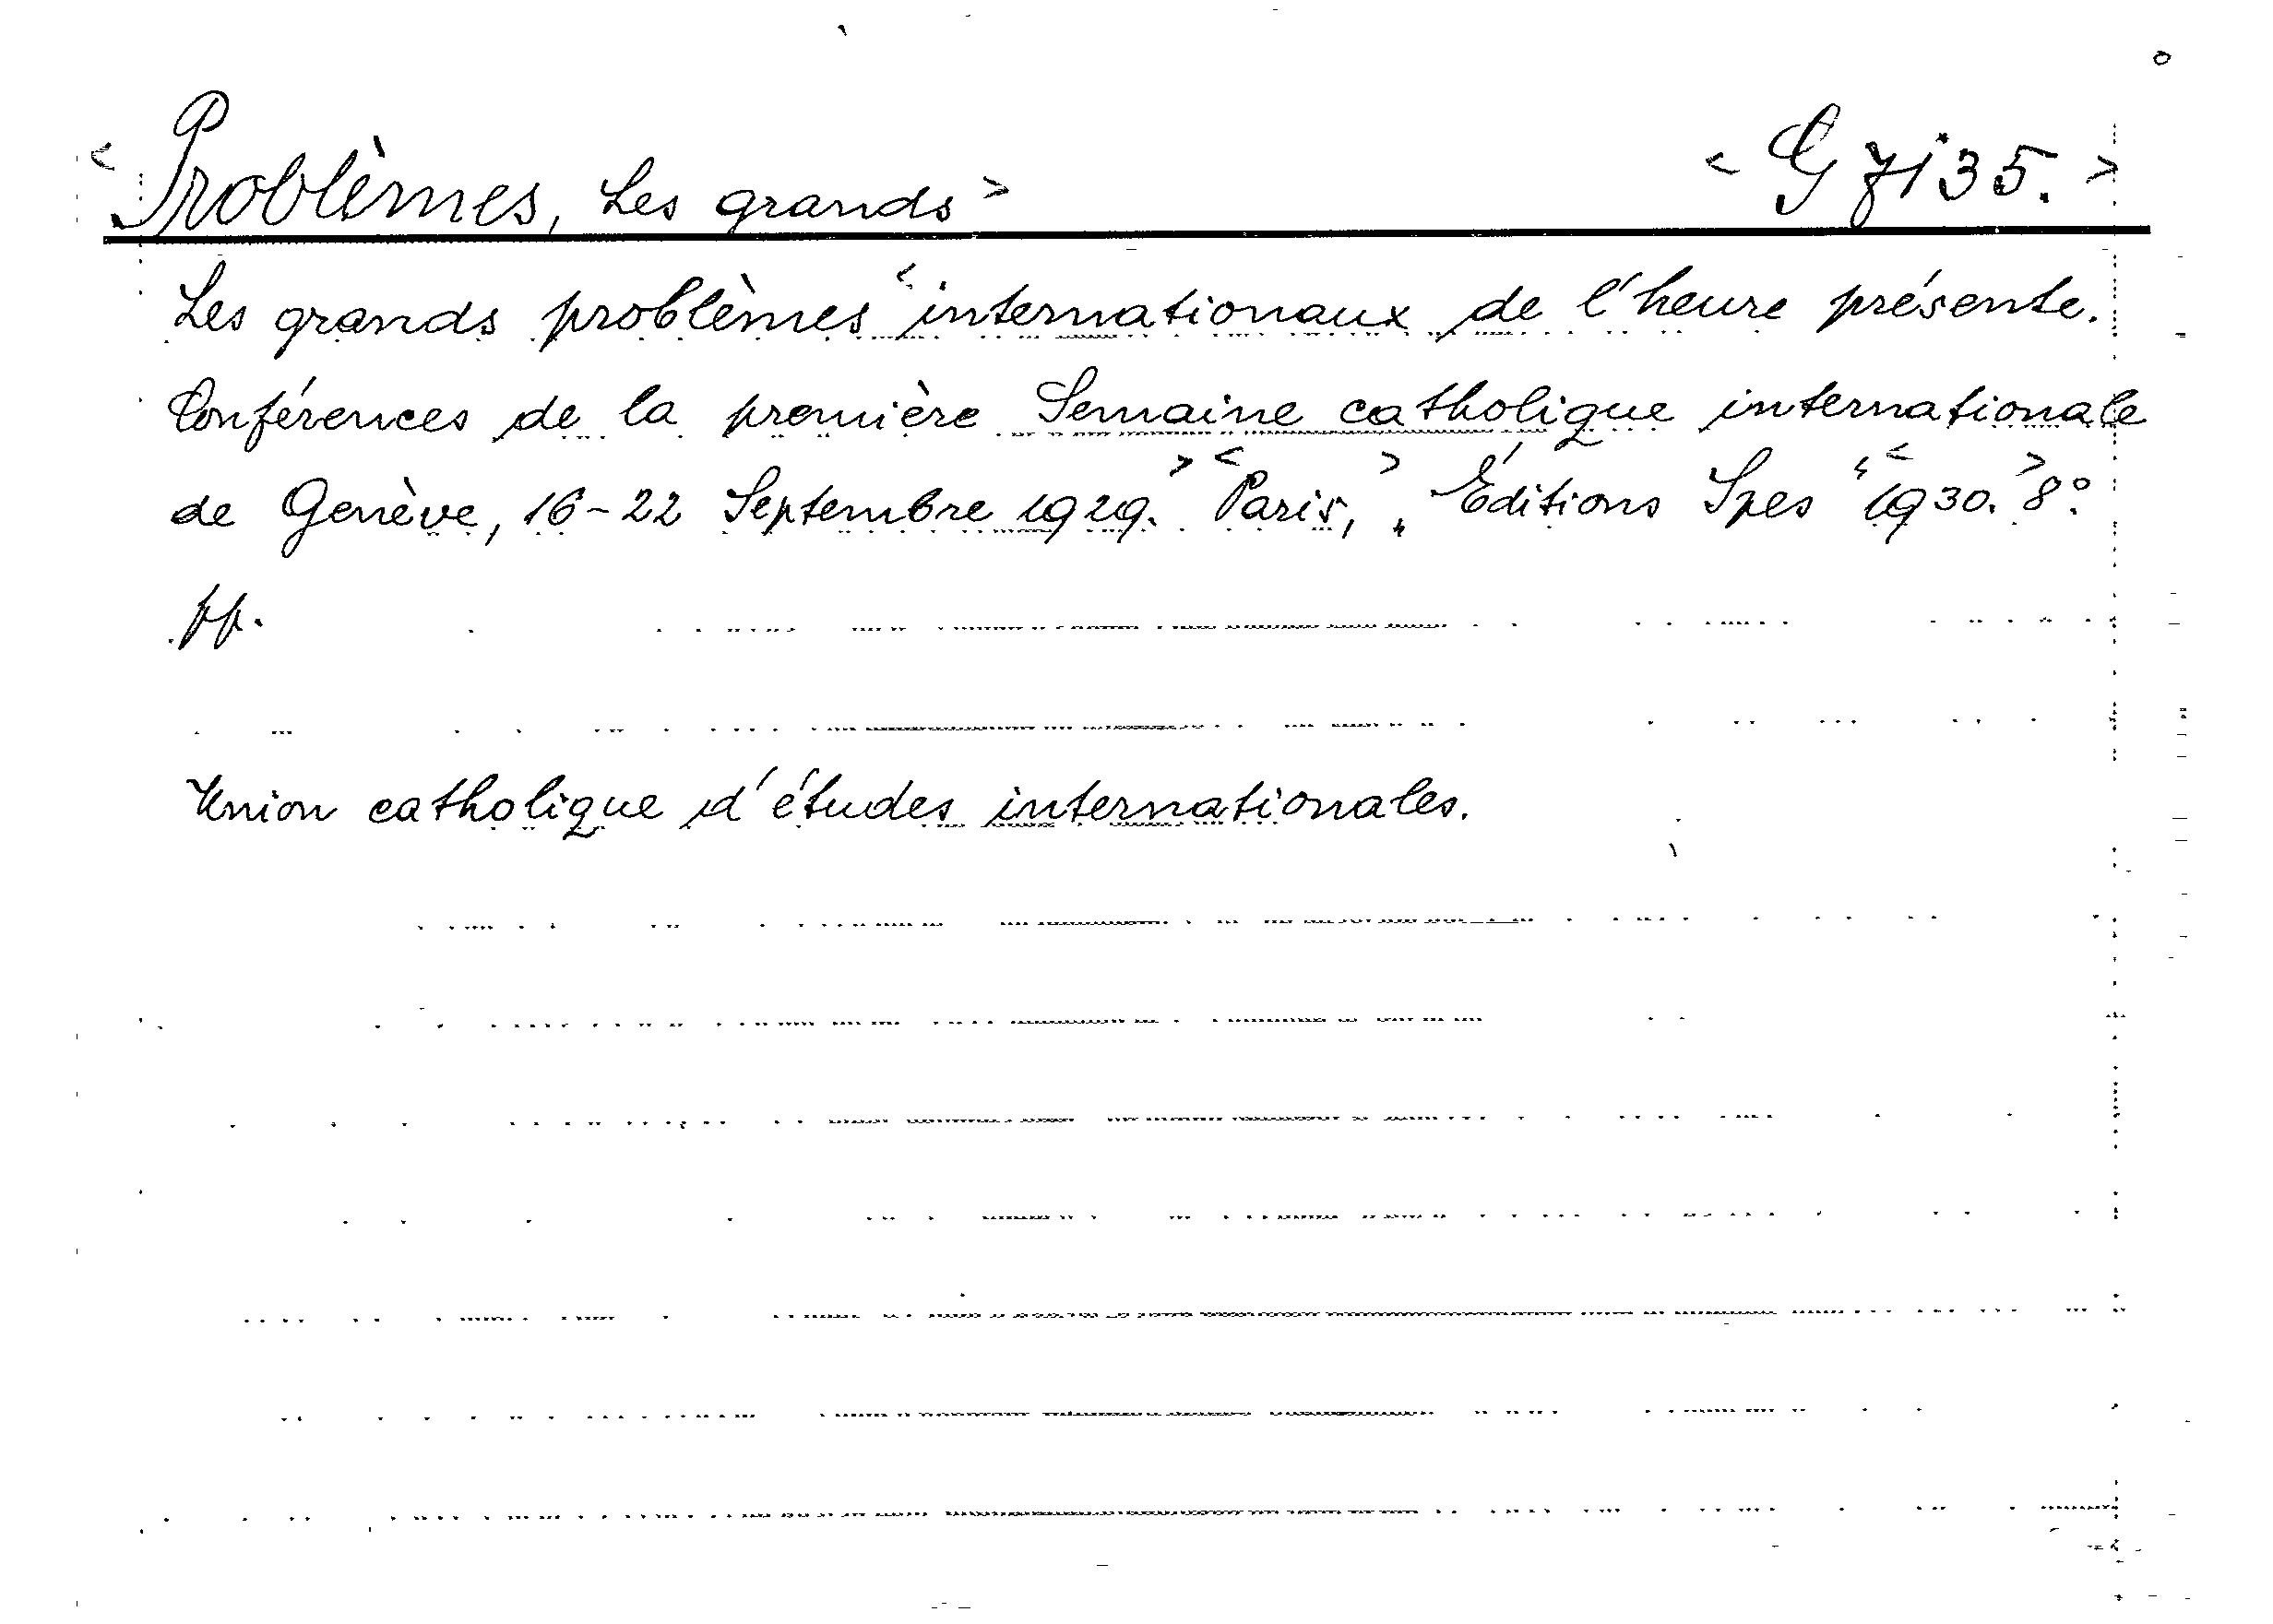 < Problèmes, Les grands > < G 7135. >
Les grands problèmes < internationaux de l'heure présente.
Conférences de la première Semaine catholique internationale
de Genève, 16-22 Septembre 1929. > < Paris, > „Éditions Spes“ < 1930. > 8°.
pp.
Union catholique d'études internationales.